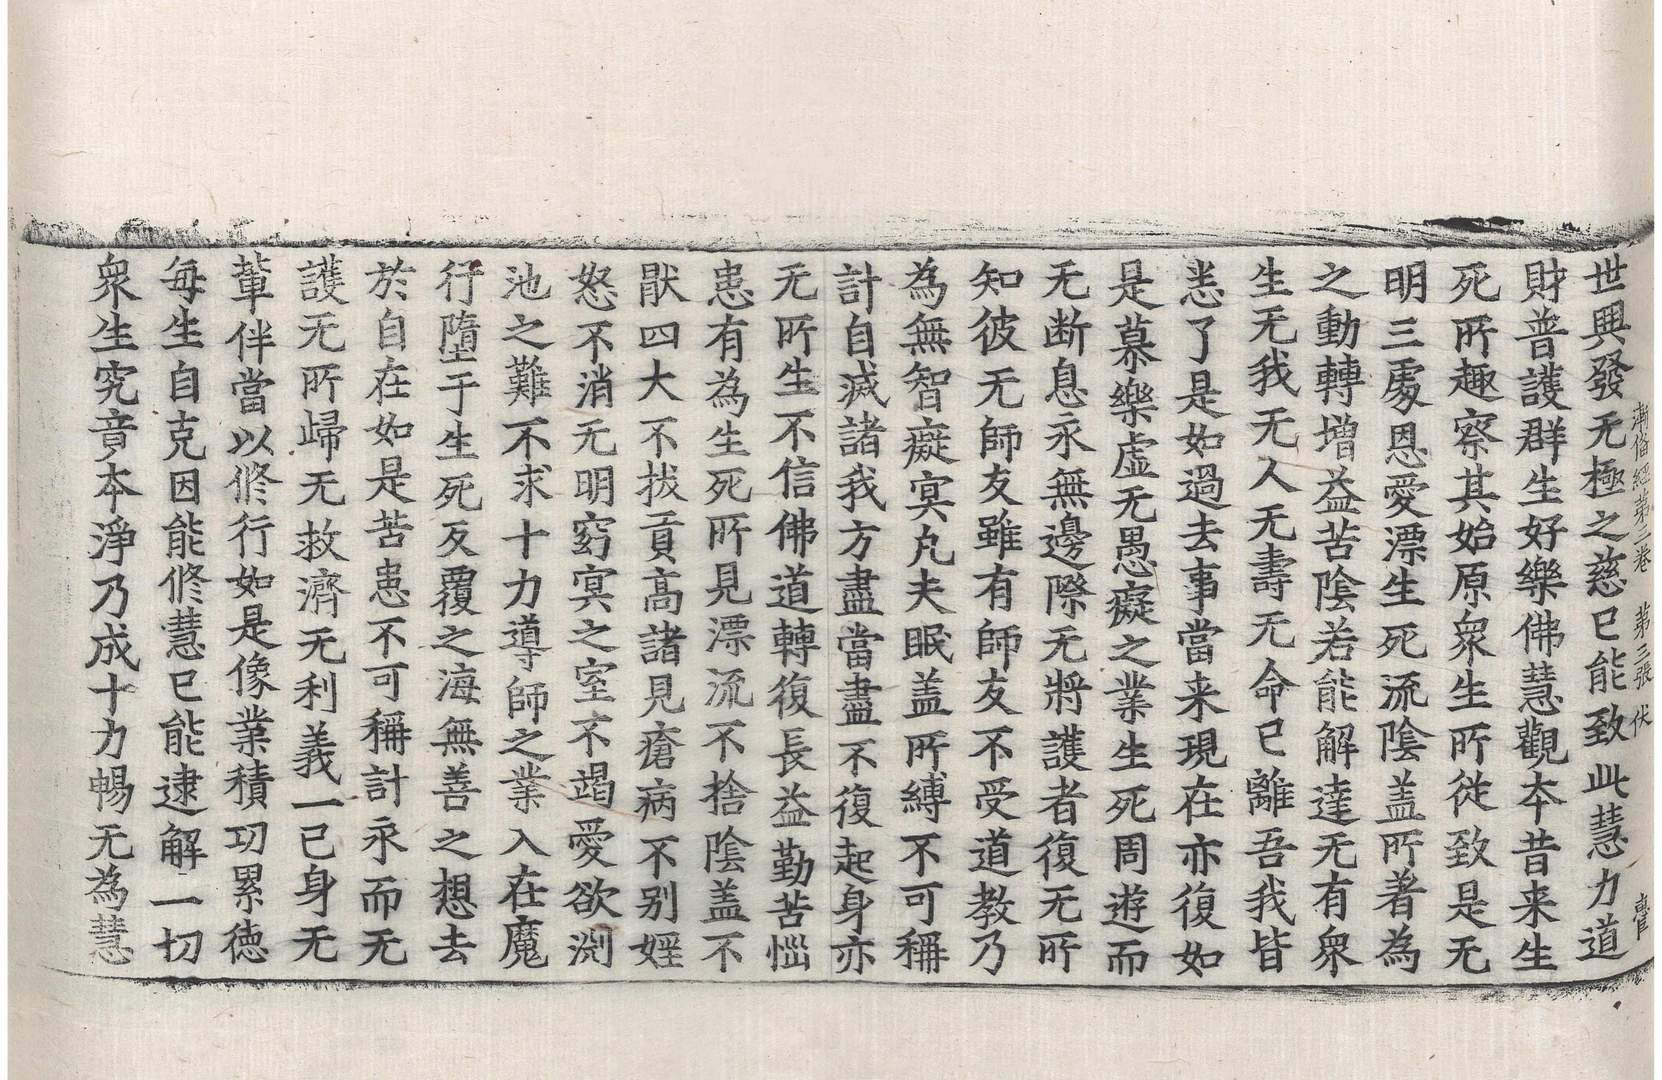 漸俻經第三卷　第三張　伏
世興發无極之慈已能致此慧力道
財普護群生好樂佛慧觀本昔来生
死所趣察其始原衆生所従致是无
明三處恩愛漂生死流隂盖所著為
之動轉增益苦隂若能解達无有衆
生无我无人无壽无命已離吾我皆
悉了是如過去事當来現在亦復如
是慕樂虚无愚癡之業生死周遊而
无断息永無邊際无將護者復无所
知彼无師友雖有師友不受道教乃
為無智癡冥凡夫眠盖所縛不可稱
計自滅諸我方盡當盡不復起身亦
无所生不信佛道轉復長益勤苦惱
患有為生死所見漂流不捨隂盖不
猒四大不拔貢高諸見瘡病不别婬
怒不消无明窮冥之室不竭愛欲渕
池之難不求十力導師之業入在魔
行墮于生死反覆之海無善之想去
於自在如是苦患不可稱計永而无
護无所歸无救濟无利義一已身无
輩伴當以修行如是像業積功累徳
每生自克因能修慧已能逮解一切
衆生究竟本淨乃成十力暢无為慧